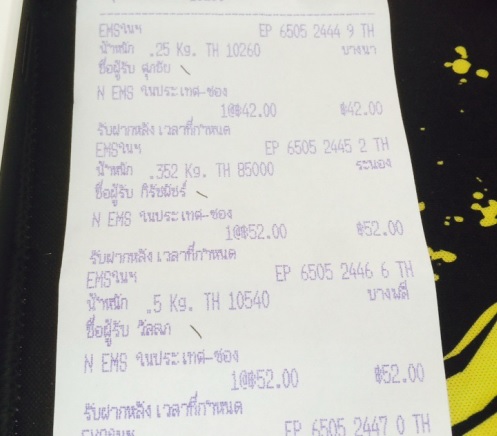 EMSในฯ EP 6505 2444 9 TH
น้ำหนัก .25 Kg. TH 10260 บางนา
ชื่อผู้รับ ศุภชัย
N EMS ในประเทศ-ซอง
1@฿42.00 ฿42.00
รับฝากหลังเวลาที่กำหนด
EMSในฯ EP 6505 2445 2 TH
น้ำหนัก .352 Kg. TH 85000 ระนอง
ชื่อผู้รับ
N EMS ในประเทศ-ซอง
1@฿52.00 ฿52.00
รับฝากหลังเวลาที่กำหนด
EMSในฯ EP 6505 2446 6 TH
น้ำหนัก .5 Kg. TH 10540 บางพลี
ชื่อผู้รับ วัลลภ
N EMS ในประเทศ-ซอง
1@฿52.00 ฿52.00
รับฝากหลังเวลาที่กำหนด
EP 6505 2447 0 TH